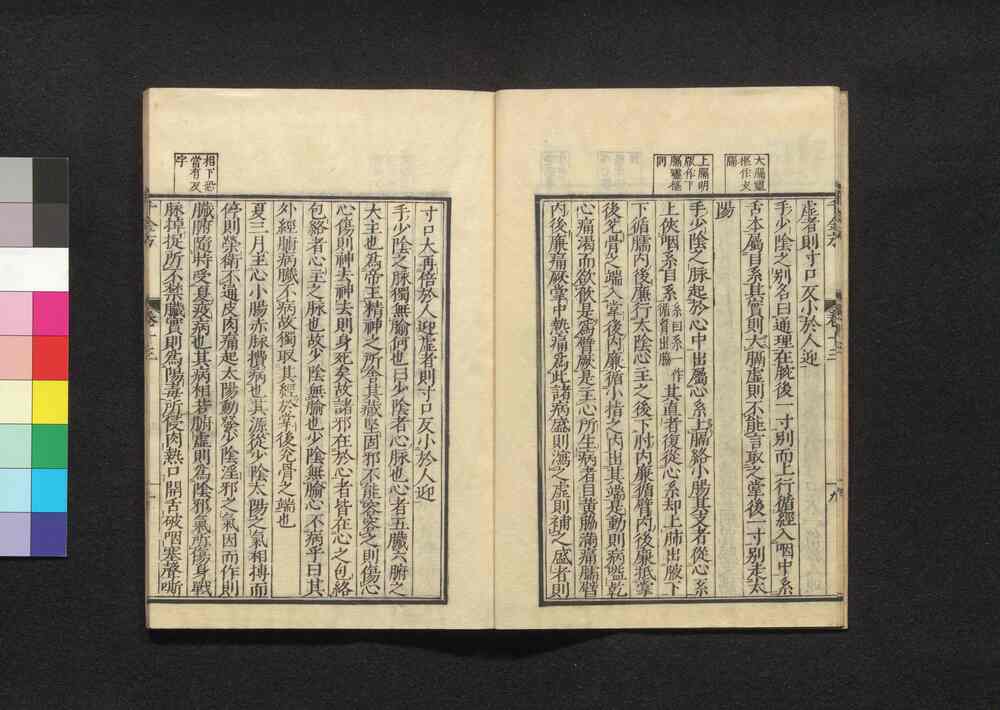 大膈靈
樞作支
膈
上膈明
版作下
膈靈樞
同
虛者則寸口反小於人迎
手少陰之別名曰通理在腕後一寸別而上行循經入咽中系
舌本屬目系其實則大膈虛則不能言取之掌後一寸別走太
陽
手少陰之脉起於心中出屬心系上膈絡小腸其支者從心系
上俠咽系目系系目系一作循胷出脇其直者復從心系却上肺出腋下
下循臑內後廉行太陰心主之後下肘內廉循臂內後廉抵掌
後兌骨之端入掌後內廉循小指之內出其端是動則病嗌乾
心痛渴而欲飲是爲臂厥是主心所生病者目黃脇滿痛臑臂
內後廉痛厥掌中熱痛爲此諸病盛則瀉之虛則補之盛者則
千金方
卷十三
九
相下恐
當有反
字
寸口大再倍於人迎虛者則寸口反小於人迎
手少陰之脉獨無腧何也曰少陰者心脉也心者五臟六腑之
大主也爲帝王精神之所舍其臟堅固邪不能容容之則傷心
心傷則神去神去則身死矣故諸邪在於心者皆在心之包絡
包絡者心主之脉也故少陰無腧也少陰無腧心不病乎曰其
外經腑病臟不病故獨取其經於掌後兌骨之端也
夏三月主心小腸赤脉攢病也其源從少陰太陽之氣相搏而
停則榮衛不通皮肉痛起太陽動發少陰淫邪之氣因而作則
臟腑隨時受夏疫病也其病相若腑虛則爲陰邪氣所傷身戰
脉掉捉所不禁臟實則爲陽毒所侵肉熱口開舌破咽塞聲嘶
千金方
卷十三